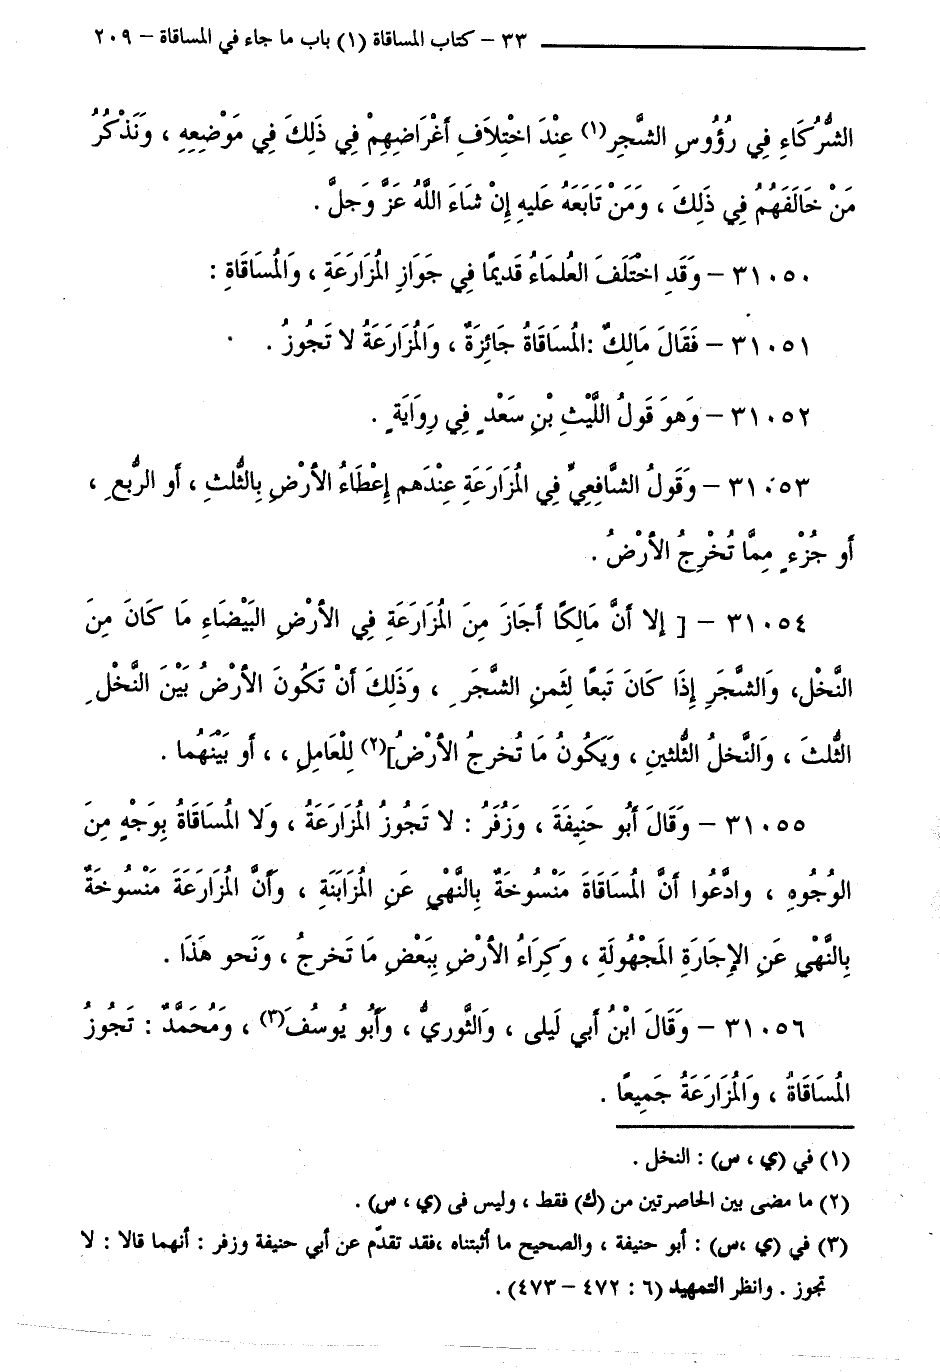 ٣٣ – كتاب المساقاة (١) باب ما جاء في المساقاة – ٢٠٩
الشُّرُكَاءِ فِي رُؤُوسِ الشَّجرِ(١) عِنْدَ اخْتِلاَفِ أغْرَاضِهِمْ فِي ذَلِكَ فِي مَوْضِعِهِ ، وَنَذْكُرُ
مَنْ خَالَفَهُمْ فِي ذَلِكَ ، وَمَنْ تَابَعَهُ عَليهِ إِنْ شَاءَ اللَّهُ عَزَّ وَجلَّ .
٣١٠٥٠ – وَقَدِ اخْتَلَفَ العُلمَاءُ قَديمًا فِي جَوَازِ الْمُزَارَعَةِ ، وَالْمُسَاقَاةِ :
٣١٠٥١ – فَقَالَ مَالِكٌ :الْمُسَاقَاةُ جَائِزَةٌ ، وَالْمُزَارَعَةُ لا تَجُوزُ .
٣١٠٥٢ – وَهوَ قَولُ اللَّيْثِ بْنِ سَعْدٍ فِي رِوَايَةٍ .
٣١٠٥٣ – وَقَولُ الشَّافِعِيِّ فِي الْمُزَارَعَةِ عِنْدَهم إِعْطَاءُ الأرْضِ بِالثُّلثِ ، أو الرُّبعِ ،
أو جُزْءٍ مِمَّا تُخْرِجُ الأرْضُ .
٣١٠٥٤ – [ إلا أنَّ مَالِكًا أجَازَ مِنَ الْمُزَارَعَةِ فِي الأرْضِ البَيْضَاءِ مَا كَانَ مِنَ
النَّخْلِ، وَالشَّجَرِ إِذَا كَانَ تَبعًا لِثَمنِ الشَّجَرِ ، وَذَلِكَ أنْ تَكُونَ الأرْضُ بَيْنَ النَّخْلِ
الثُّلثَ ، وَالنَّخلُ الثُّلثينِ ، وَيَكُونُ مَا تُخرجُ الأرْضُ](٢) لِلْعَامِلِ ، ، أو بَيْنَهُما .
٣١٠٥٥ – وَقَالَ أبُو حَنِيفَةَ ، وَزُفَرُ : لا تَجُوزُ الْمُزَارَعَةُ ، وَلا الْمُسَاقَاةُ بِوَجْهٍ مِنَ
الوُجُوهِ ، وادَّعُوا أنَّ الْمُسَاقَاةَ مَنْسُوخَةٌ بِالنَّهْيِ عَنِ الْمُزَابَنَةِ ، وَأنَّ الْمُزَارَعَةَ مَنْسُوخَةٌ
بِالنَّهْيِ عَنِ الإِجَارَةِ الْمَجْهُولَةِ ، وَكِرَاءُ الأرْضِ بِبَعْضِ مَا تَخرجُ ، وَنَحو هَذَا .
٣١٠٥٦ – وَقَالَ ابْنُ أبي لَيلى ، وَالثَّوريُّ ، وَأبُو يُوسُفَ(٣) ، وَمُحَمَّدٌ : تَجُوزُ
الْمُسَاقَاةُ ، وَالْمُزَارَعَةُ جَمِيعًا .
(١) في (ي ، س) : النخل .
(٢) ما مضى بين الحاصرتين من (ك) فقط ، وليس فى (ي ، س) .
(٣) في (ي ،س) : أبو حنيفة ، والصحيح ما أثبتناه ،فقد تقدّم عن أبي حنيفة وزفر : أنهما قالا : لا
تجوز . وانظر التمهيد (٦ : ٤٧٢ – ٤٧٣) .